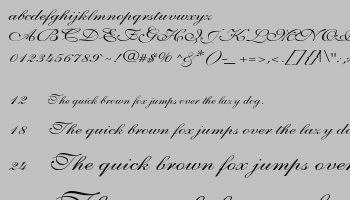 abcdefghijklmnopqrstuvwxyz
ABCDEFGHIJKLMNO
0123456789.~!@#$%^&*()-_+=>,<.[]{}/\":;,
12 The quick brown fox jumps over the lazy dog.
18 The quick brown fox jumps over the lazy do
24 The quick brown fox jumps ove